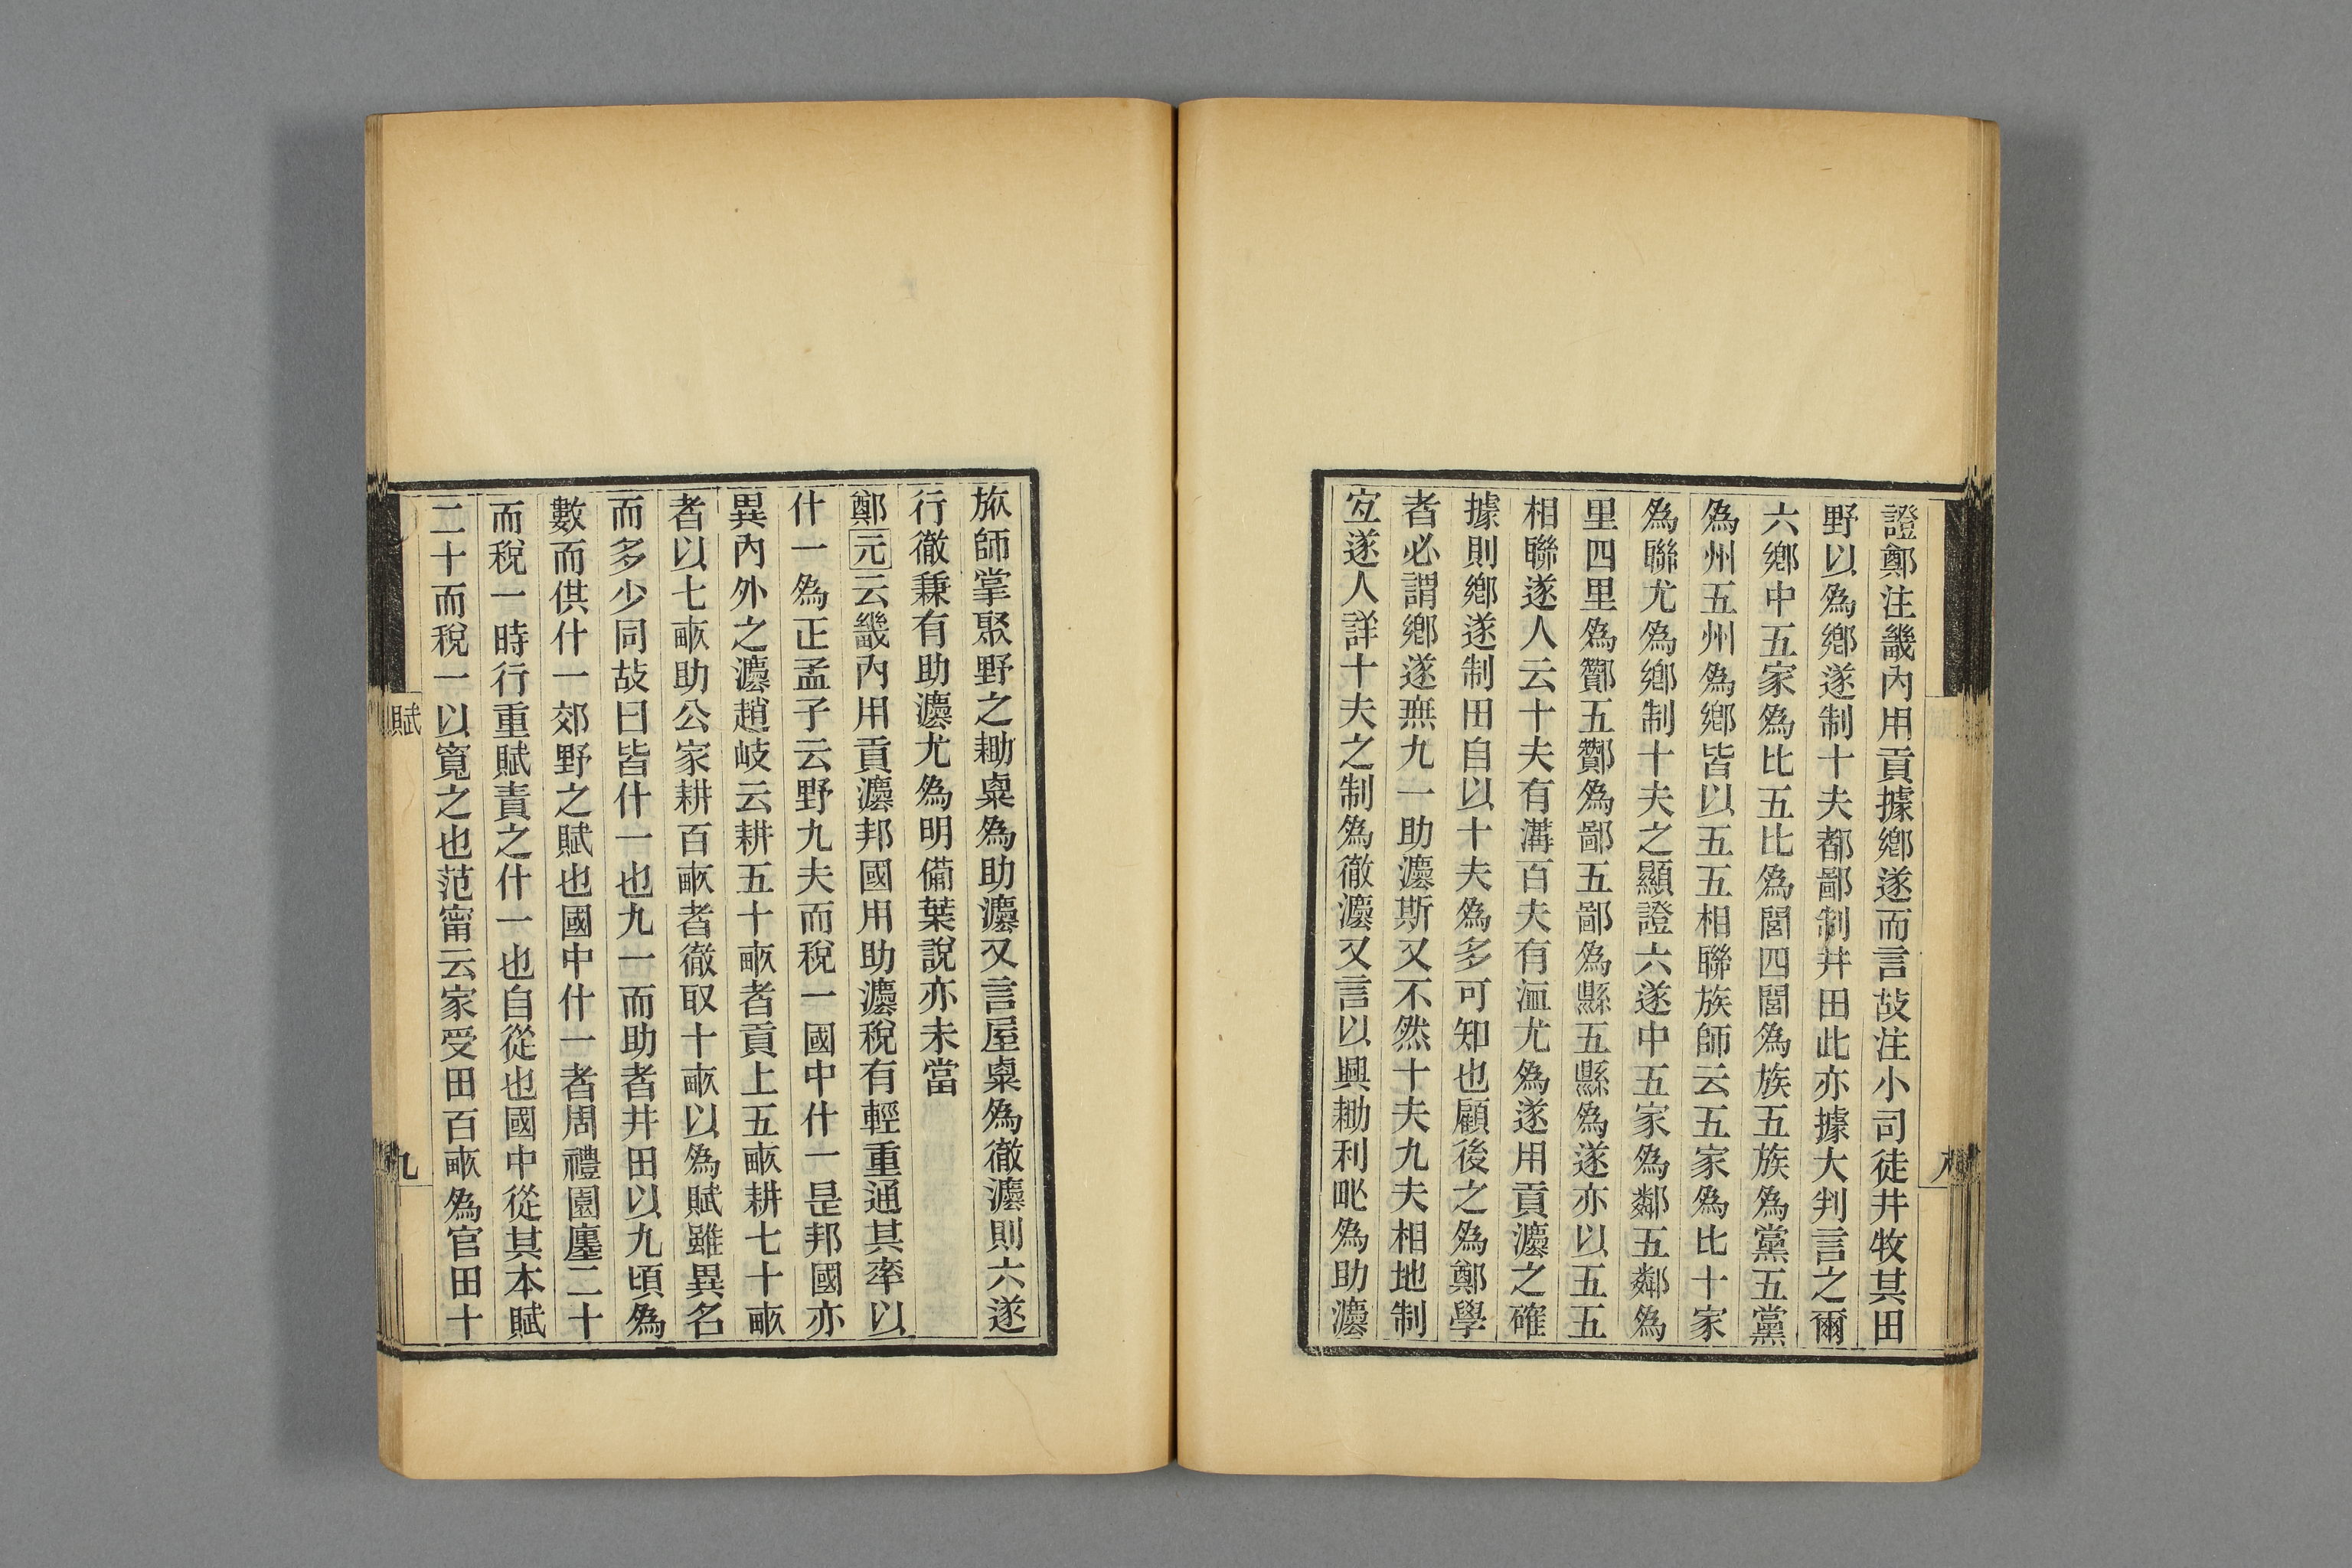 證鄭注畿內用貢據鄉遂而言故注小司徒井牧其田
野以爲鄉遂制十夫都鄙制井田此亦據大判言之爾
六鄉中五家爲比五比爲閭四閭爲族五族爲黨五黨
爲州五州爲鄉皆以五五相聯族師云五家爲比十家
爲聯尤爲鄉制十夫之顯證六遂中五家爲鄰五鄰爲
里四里爲酇五酇爲鄙五鄙爲縣五縣爲遂亦以五五
相聯遂人云十夫有溝百夫有洫尤爲遂用貢灋之確
據則鄉遂制田自以十夫爲多可知也顧後之爲鄭學
者必謂鄉遂無九一助灋斯又不然十夫九夫相地制
宐遂人詳十夫之制爲徹灋又言以興耡利甿爲助灋
旅師掌聚野之耡粟爲助灋又言屋粟爲徹灋則六遂
行徹兼有助灋尤爲明備葉說亦未當
鄭元云畿內用貢灋邦國用助灋稅有輕重通其率以
什一爲正孟子云野九夫而稅一國中什一是邦國亦
異內外之灋趙岐云耕五十畞者貢上五畞耕七十畞
者以七畞助公家耕百畞者徹取十畞以爲賦雖異名
而多少同故曰皆什一也九一而助者井田以九頃爲
數而供什一郊野之賦也國中什一者周禮園廛二十
而稅一時行重賦責之什一也自從也國中從其本賦
二十而稅一以寬之也范甯云家受田百畞爲官田十
賦
九